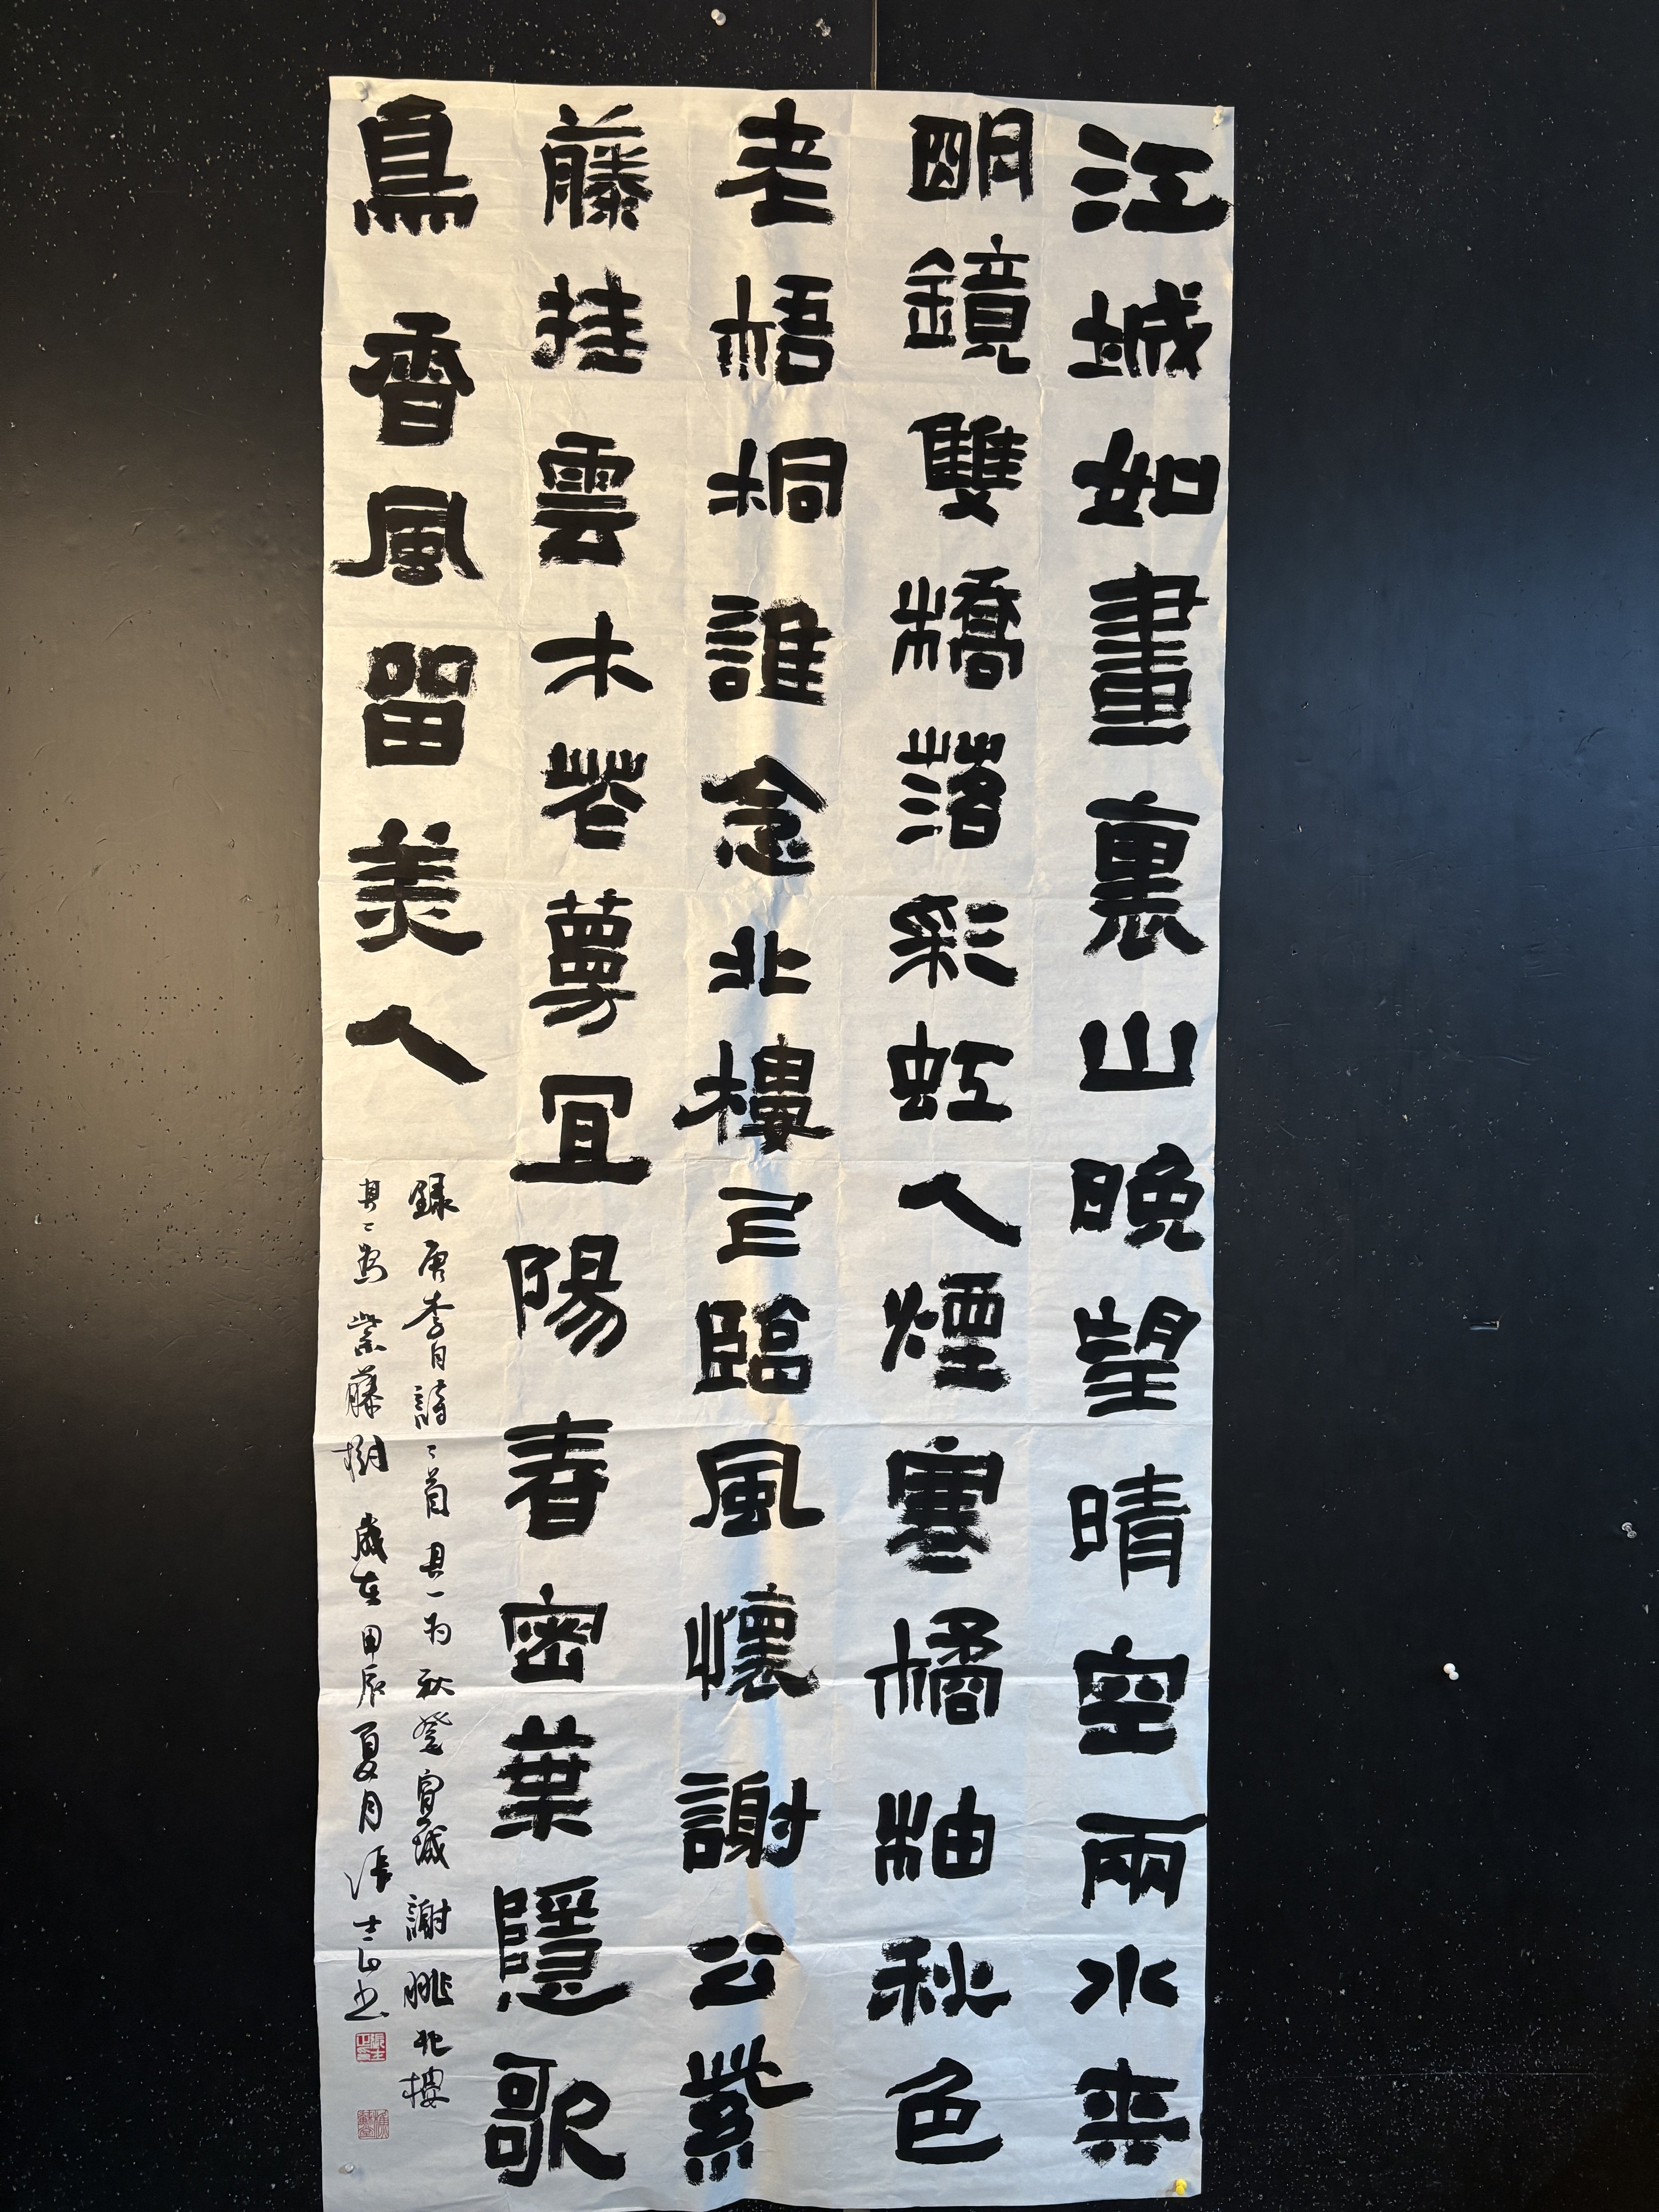 江城如畫裏山晚望晴空兩水夾
明鏡雙橋落彩虹人煙寒橘柚秋色
老梧桐誰念北樓上臨風懷謝公紫
藤挂雲木花蔓宜陽春密葉隱歌
鳥香風留美人
錄唐李白詩二首其一为秋登宣城謝朓北樓
其二为紫藤樹歲在甲辰夏月張士